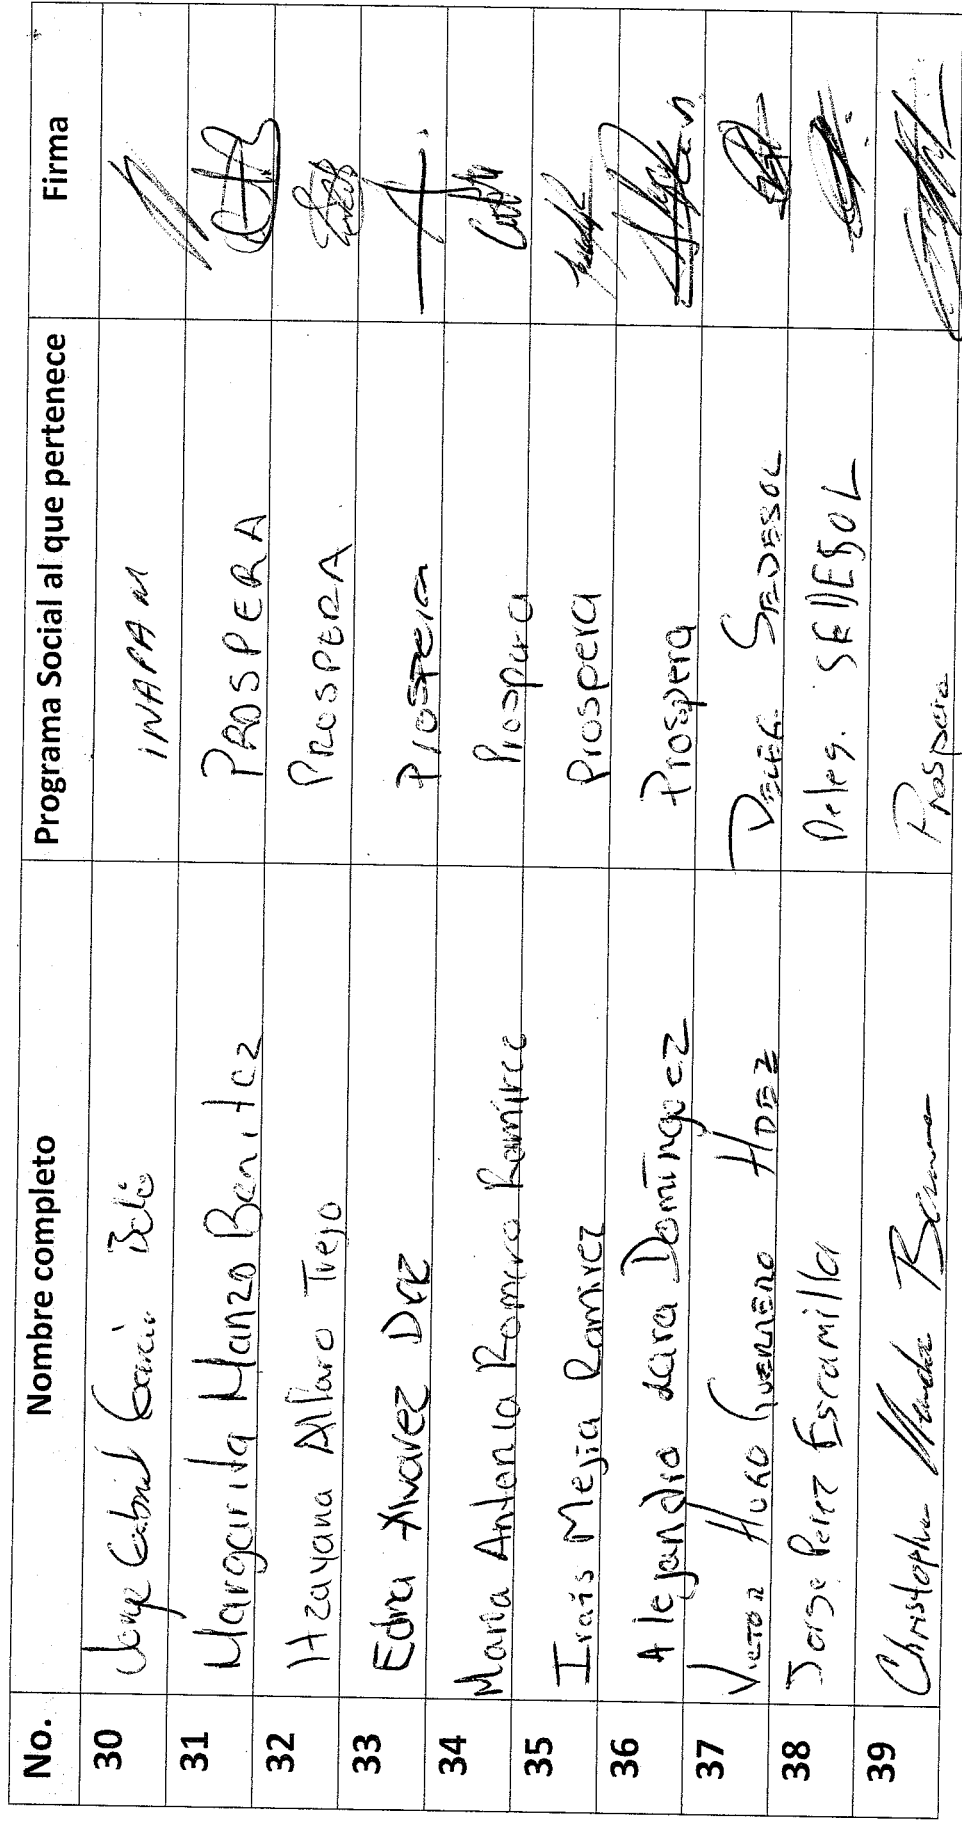 No. Nombre completo Programa Social al que pertenece Firma
30 Jorge Gabriel García INAPAM
31 Margarita Manzo Benitez PROSPERA
32 Itzayana Alfaro Trejo PROSPERA
33 Edna Alvarez Prospera
34 María Antonia Romero Ramírez Prospera
35 Irais Mejía Ramirez Prospera
36 Alejandro Lara Domínguez Prospera
37 VICTOR HUGO GUERRERO HDEZ DELEG. SEDESOL
38 Jorge Perez Escamilla Deleg. SEDESOL
39 Christopher Prospera